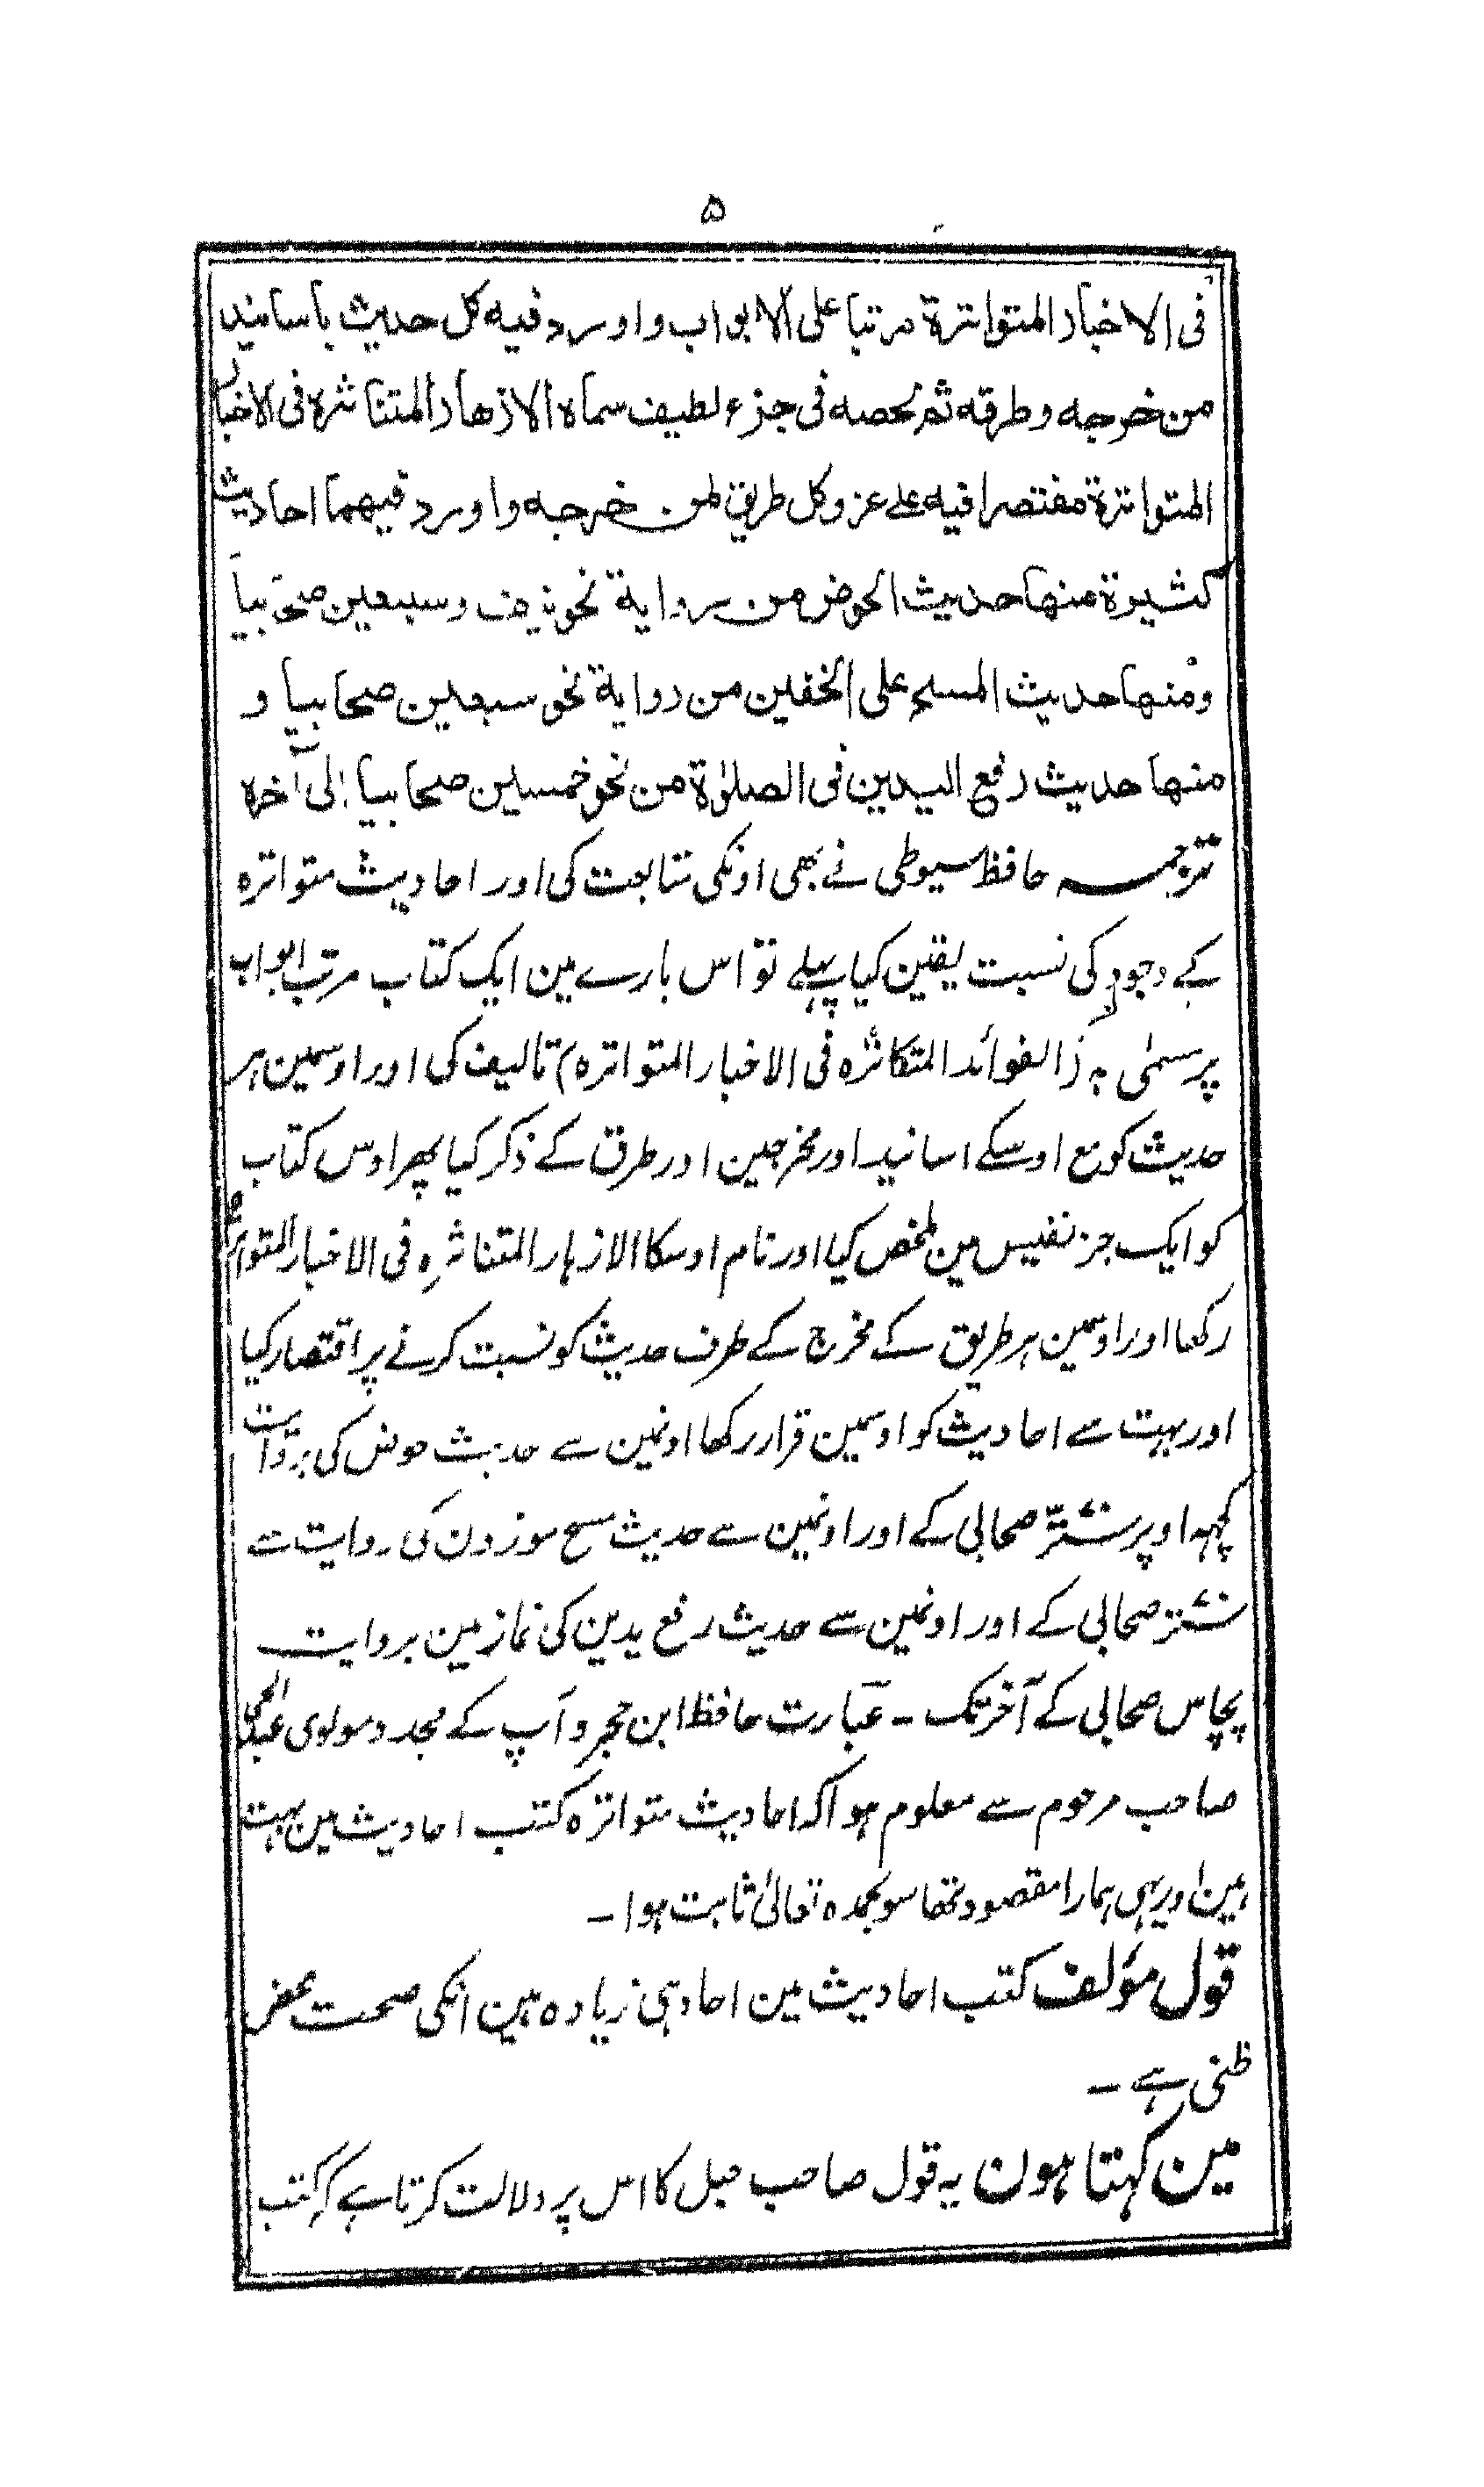 ۵
فی الاخبار المتواترة مرتبا علی الابواب واورد فیه کل حدیث باسانید
من خرجه وطرقه ثم لخصه فی جزء لطیف سماه الازهار المتناثرة فی الاخبار
المتواترة مقتصرا فیه علی عزو کل طریق لمن خرجه واورد فیهما احادیث
کثیرة منها حدیث الحوض من روایة نحو نیف وسبعین صحابیا
ومنها حدیث المسح علی الخفین من روایة نحو سبعین صحابیا و
منها حدیث رفع الیدین فی الصلوٰة من نحو خمسین صحابیا الی آخره
ترجمہ حافظ سیوطی نے بھی اونکی متابعت کی اور احادیث متواترہ
کے وجود کی نسبت یقین کیا پہلے تو اس بارے مین ایک کتاب مرتب ابواب
پر مسمیٰ بہ (الفوائد المتکاثرہ فی الاخبار المتواترہ) تالیف کی اور اوسمین ہر
حدیث کو مع اوسکے اسانید اور مخرجین اور طرق کے ذکر کیا پھر اوس کتاب
کو ایک جز نفیس مین ملخص کیا اور نام اوسکا الازہار المتناثرہ فی الاخبار المتواترہ
رکھا اور اوسمین ہر طریق کے مخرج کے طرف حدیث کو نسبت کرنے پر اقتصار کیا
اور بہت سے احادیث کو اوسمین قرار رکھا اونمین سے حدیث حوض کی بروایت
کچہہ اوپر ستّر صحابی کے اور اونمین سے حدیث مسح موزون کی روایت سے
ستر صحابی کے اور اونمین سے حدیث رفع یدین کی نماز مین بروایت
پچاس صحابی کے آخر تک ۔ عبارت حافظ ابن حجر و آپ کے مجدد مولوی عبدالحی
صاحب مرحوم سے معلوم ہوا کہ احادیث متواترہ کتب احادیث مین بہت
ہین اور یہی ہمارا مقصود تھا سو بحمدہ تعالیٰ ثابت ہوا ۔
قول مؤلف کتب احادیث مین احاد ہی زیادہ ہین انکی صحت محض
ظنی ہے ۔
مین کہتا ہون یہ قول صاحب حبل کا اس پر دلالت کرتا ہے کہ کتب